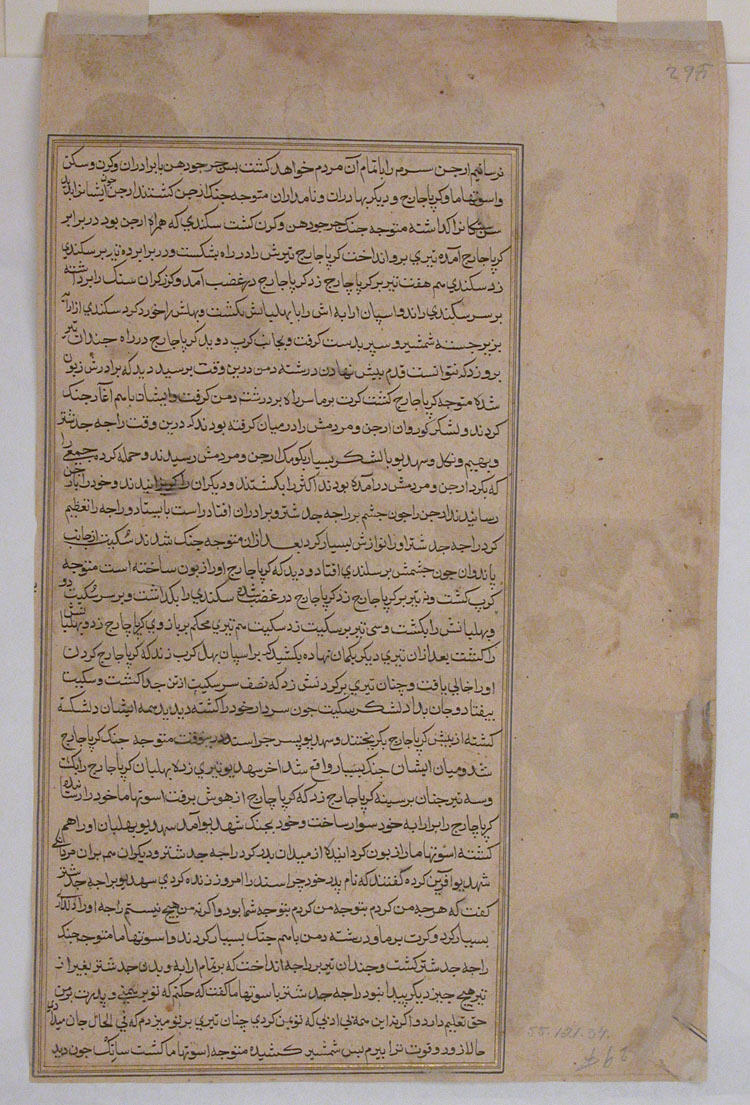 295
نرسانیم ارجن سرم را با تمام آن مردم خواهد کشت پس جرجودهن با برادران و کرن و سکن
واسوتهاما و کرپاچارج و دیگر بهادران و نامداران متوجه جنک ارجن کشتند ارجن چون ایشانرا دید
را کذاشته متوجه جنک جرجودهن و کرن کشت سکندی که همراه ارجن بود در برابر
کرپاچارج آمده تیری برو انداخت کرپاچارج تیرش را در راه بشکست و در برابر ده تیر بر سکندی
زد سکندی هم هفت تیر بر کرپاچارج زد کرپاچارج در غضب آمد و کرز کران سنک را برداشته
بر سر سکندی راند و اسپان ارابه اش را با بهلبانش بکشت و بهلش را خورد کرد سکندی از ارابه
بزیر جسته شمشیر و سپر بدست کرفت و بجانب کرپ دوید کرپاچارج در راه چندان تیر
برو زد که نتوانست قدم پیش نهادن درشته دمن درین وقت برسید دید که برادرش زبون
شده متوجه کرپاچارج کشت کرت برما سر راه بر درشته دمن کرفت و ایشان با هم آغاز جنک
کردند و لشکر کوروان ارجن و مردمش را در میان کرفته بودند که درین وقت راجه جدشتر
و بهیم و نکل و سهدیو با لشکر بسیار بکومک ارجن و مردمش رسیدند و حمله کرده جمعی را
که بکرد ارجن و مردمش درآمده بودند اکثر را بکشتند و دیکران را کریزانیدند و خود را بارجن
رسانیدند ارجن را چون چشم بر راجه جدشتر و برادران افتاد راست بایستاد و راجه را تعظیم
کرد راجه جدشتر او را نوازش بسیار کرد بعد ازان متوجه جنک شدند سکیت از جانب
پاندوان چون چشمش بر سکندی افتاد و دید که کرپاچارج او را زبون ساخته است متوجه
کرپ کشت و نه تیر بر کرپاچارج زد کرپاچارج در غضب شده سکندی را بکذاشت و بر سر سکیت دوید
و بهلبانش را بکشت و سی تیر بر سکیت زد سکیت هم تیری محکم بر بازوی کرپاچارج زد و بهلبانش
را کشت بعد ازان تیری دیکر بکمان نهاده بکشید که بر اسپان بهل کرپ زند که کرپاچارج کردن
او را خالی یافت و چنان تیری بر کردنش زد که نصف سر سکیت از تن جدا کشت و سکیت
بیفتاد و جان بداد لشکر سکیت چون سردار خود را کشته دیدند همه ایشان دلشکسته
کشته از پیش کرپاچارج بکریختند و سهدیو پسر جراسند درین وقت متوجه جنک کرپاچارج
شد و میان ایشان جنک بسیار واقع شد آخر سهدیو تیری زده بهلبان کرپاچارج را بکشت
و سه تیر چنان بر سینه کرپاچارج زد که کرپاچارج از هوش برفت اسوتهاما خود را رسانیده
کرپاچارج را برارابه خود سوار ساخت و خود بجنک شهدیو آمد سهدیو بهلبان او را هم
کشته اسوتهاما را زبون کردانیده از میدان بدر کرد راجه جدشتر و دیکران هم بران مردانکی
شهدیو آفرین کرده کفتند که نام پدر خود جراسند را امروز زنده کردی سهدیو براجه جدشتر
کفت که هر چه من کردم بتوجه من کردم بتوجه شما بود و اکرنه من هیچ نیستم راجه او را دلداری
بسیار کرد و کرت برما و درشته دمن با هم جنک بسیار کردند و اسوتهاما متوجه جنک
راجه جدشتر کشت و چندان تیر بر راجه انداخت که بر تمام ارابه و بدن جدشتر بغیر از
تیر هیچ چیز دیکر پیدا نبود راجه جدشتر باسوتهاما کفت که چکنم که تو برهمنی و پدرت بر من
حق تعلیم دارد و اکرنه این همه بی ادبی که تو بمن کردی چنان تیری بر تو میزدم که فی الحال جان میدادی
حالا زور و قوت ترا ببرم پس شمشیر کشیده متوجه اسوتهاما کشت ساتک چون دید
55.121.34